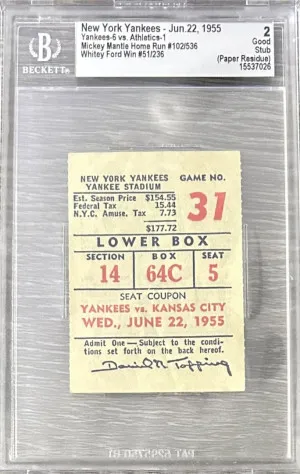 New York Yankees - Jun.22, 1955
Yankees-6 vs. Athletics-1
Mickey Mantle Home Run #102/536
Whitey Ford Win #51/236
2
Good
Stub
(Paper Residue)
15537026
B
BECKETT
NEW YORK YANKEES
YANKEE STADIUM
GAME NO.
Est. Season Price $154.55
Federal Tax 15.44
N.Y.C. Amuse. Tax 7.73
$177.72
31
LOWER BOX
SECTION BOX SEAT
14 64C 5
SEAT COUPON
YANKEES vs. KANSAS CITY
WED., JUNE 22, 1955
Admit One — Subject to the condi-
tions set forth on the back hereof.
Daniel R. Topping